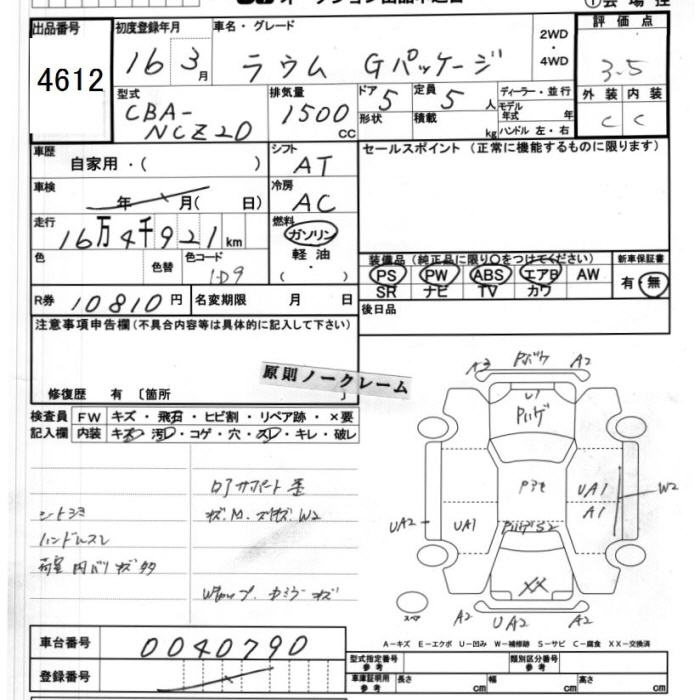 出品番号
4612
初度登録年月
16 3月
車名・グレード
ラウム Gパッケージ
2WD
・
4WD
評価点
3.5
型式
CBA-
NCZ20
排気量
1500
cc
ドア
5
定員
5人
形状
積載
kg
ディーラー・並行
モデル
年式 年
ハンドル 左・右
外装 内装
C C
車歴
自家用・( )
シフト
AT
セールスポイント(正常に機能するものに限ります)
車検
年 月( 日)
冷房
AC
走行
16万4千921km
燃料
ガソリン
軽油
( ・ )
色
色替
色コード
1D9
装備品(純正品に限り○をつけてください)
PS PW ABS エアB AW
SR ナビ TV カワ
新車保証書
有・無
R券 10810円
名変期限 月 日
後日品
注意事項申告欄(不具合内容等は具体的に記入して下さい)
原則ノークレーム
修復歴 有〔箇所 〕
検査員
記入欄
FW キズ・飛石・ヒビ割・リペア跡・×要
内装 キズ・汚・コゲ・穴・スレ・キレ・破レ
シートシミ
ハンドルスレ
荷室内バリキズ多
A3
A2
U1
P3モ
UA1
A1
W2
UA2
UA1
XX
スペア
A2
UA2
A2
A-キズ E-エクボ U-凹み W-補修跡 S-サビ C-腐食 XX-交換済
車台番号
0040790
登録番号
型式指定番号
参考
類別区分番号
参考
車庫証明用
参考
長さ cm
幅 cm
高さ cm